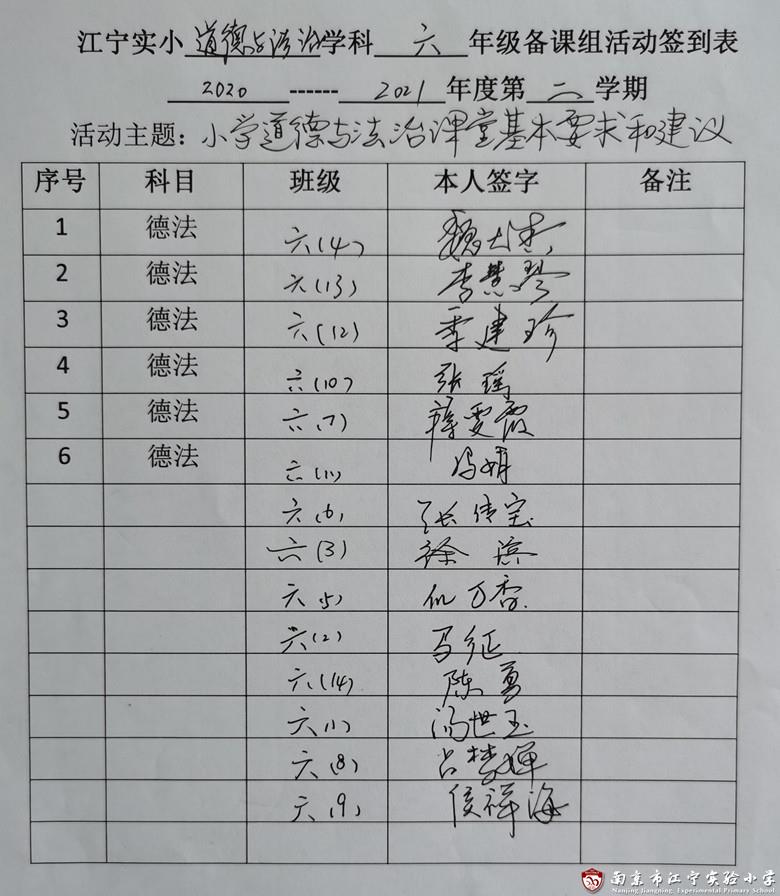 江宁实小 道德与法治 学科 六 年级备课组活动签到表
2020 ------ 2021 年度第 二 学期
活动主题：小学道德与法治课堂基本要求和建议
序号 科目 班级 本人签字 备注
1 德法 六(4)
2 德法 六(13) 李慧琴
3 德法 六(12) 季建珍
4 德法 六(10) 张瑶
5 德法 六(7) 蒋雯霞
6 德法 六(11) 冯娟
六(6) 张传宝
六(3) 徐滨
六(5) 万香
六(2) 马征
六(14) 陈勇
六(1) 汤世玉
六(8) 吕梦婵
六(9) 侯祥海
南京市江宁实验小学
Nanjing Jiangning Experimental Primary School